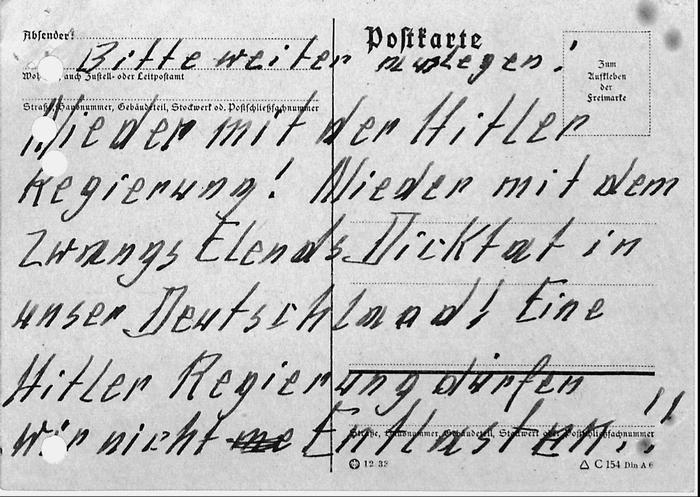 Absender:
Postkarte
Bitte weiter auslegen!
Wohnort, auch Zustell- oder Leitpostamt
Zum
Aufkleben
der
Freimarke
Straße, Hausnummer, Gebäudeteil, Stockwerk od. Postschließfachnummer
Nieder mit der Hitler
Regierung! Nieder mit dem
Zwangs Elends Dicktat in
unser Deutschlaad! Eine
Hitler Regierung dürfen
wir nicht Entlasten. !!
Straße, Hausnummer, Gebäudeteil, Stockwerk od. Postschließfachnummer
12 38
C 154 Din A 6